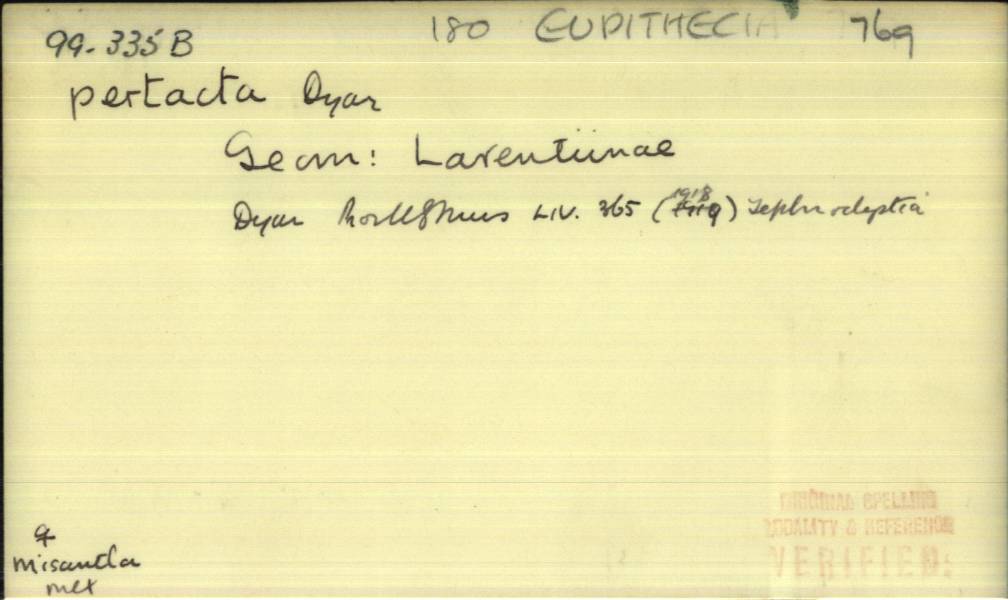 180 EUPITHECIA 769
99-335B
pertacta Dyar
Geom: Larentiinae
Dyar LIV. 365 (1918) Tephroclystia
♀
Misantla
Mex
ORIGINAL SPELLING
LOCALITY & REFERENCE
VERIFIED: